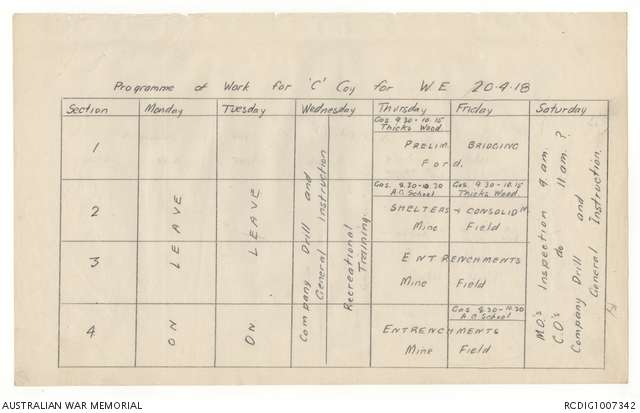 Programme of Work for 'C' Coy for W.E 20-4-18
Section Monday Tuesday Wednesday Thursday Friday Saturday
1
Gas 9.30-10.15
Thicks Wood
PRELIM. BRIDGING
Ford.
2
Gas 9.30-10.30
A.C. School
Gas 9.30-10.15
Thicks Wood
SHELTERS + CONSOLIDN.
Mine Field
3
ENTRENCHMENTS
Mine Field
4
Gas 9.30-10.30
A.C. School
ENTRENCHMENTS
Mine Field
ON LEAVE
ON LEAVE
Company Drill and
General Instruction
Recreational
Training.
M.O.'s Inspection 9 a.m.
C.O.'s do 11 a.m. ?
Company Drill and
General Instruction.
AUSTRALIAN WAR MEMORIAL
RCDIG1007342